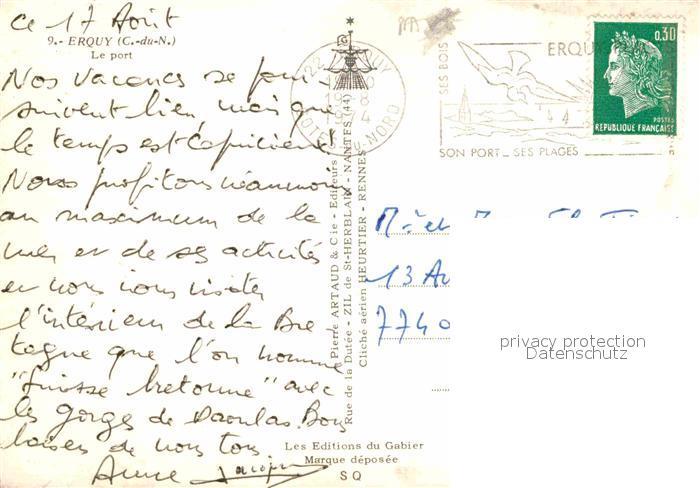 ce 17 Août
9.- ERQUY (C.-du-N.)
Le port
Nos vacances se pour
suivent bien, mais que
le temps est capricieux!
Nous profitons néanmoins
au maximum de la
mer et de ses activités
et nous visitons
l'intérieur de la Bre
tagne que l'on nomme
"Suisse bretonne" avec
les gorges de Daoulas. Bons
baisers de nous tous.
Anne Jacques
Pierre ARTAUD & Cie - Editeurs
Rue de la Dutée - ZIL de St-HERBLAIN - NANTES (44)
Cliché aérien HEURTIER - RENNES
Les Editions du Gabier
Marque déposée
SQ
22 ERQUY
1974
COTES DU NORD
SES BOIS
ERQUY
SON PORT _ SES PLAGES
0,30
POSTES
REPUBLIQUE FRANÇAISE
Mr et
13 Av
7740
privacy protection
Datenschutz